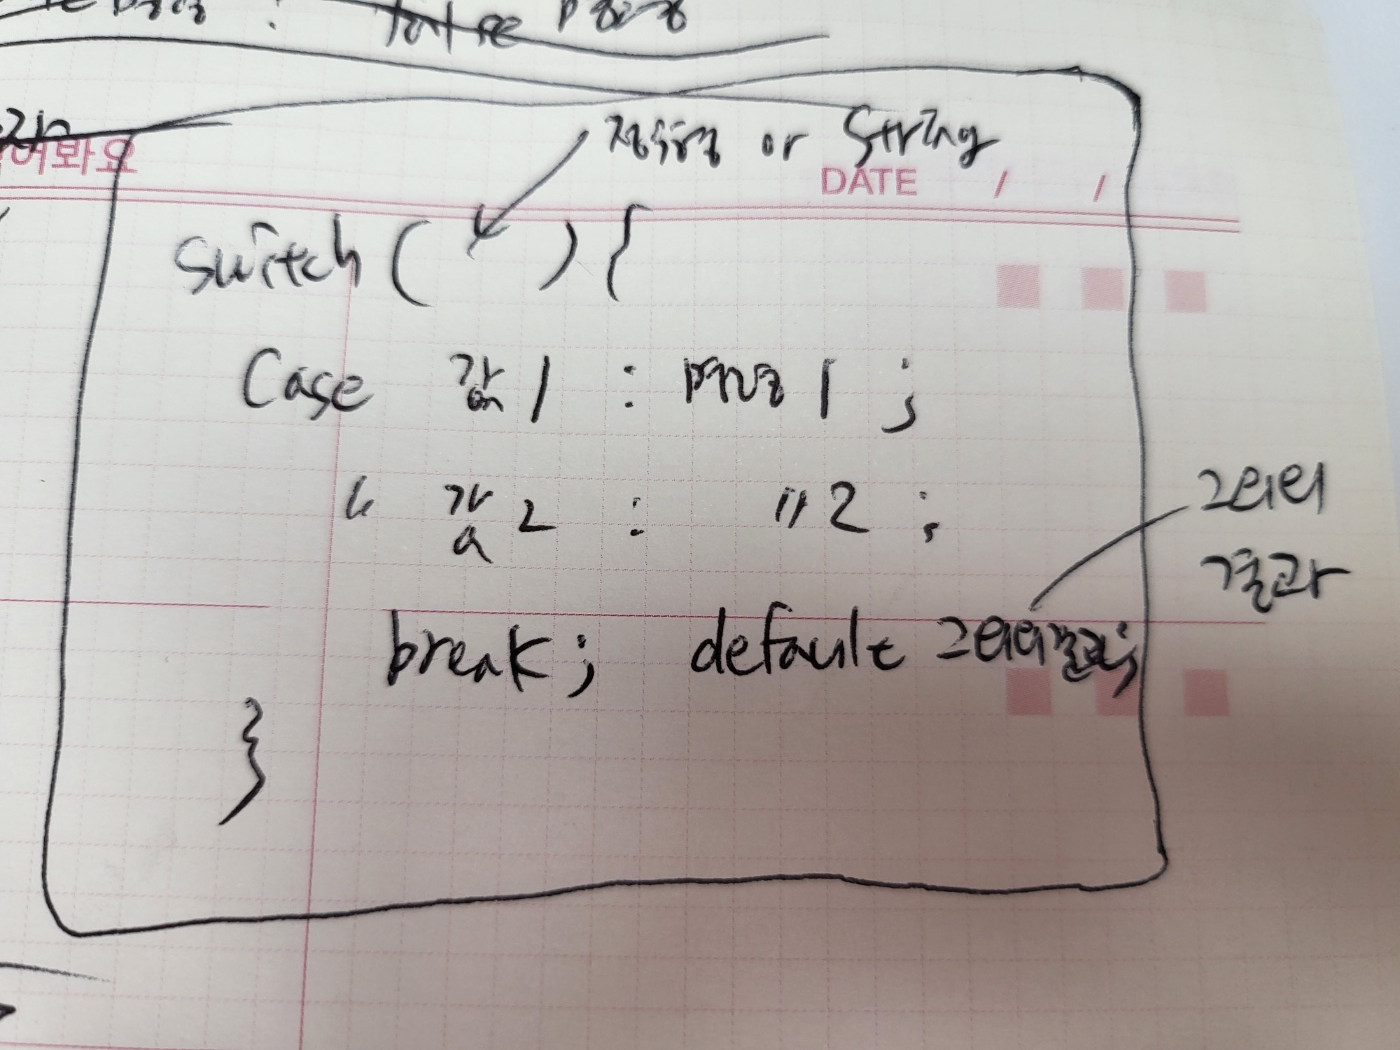 false
정수형 or String
어봐요
DATE / /
switch ( ) {
Case 값1 : 명령1 ;
" 값2 : "2 ;
그외의
결과
break ; default 그외의결과;
}